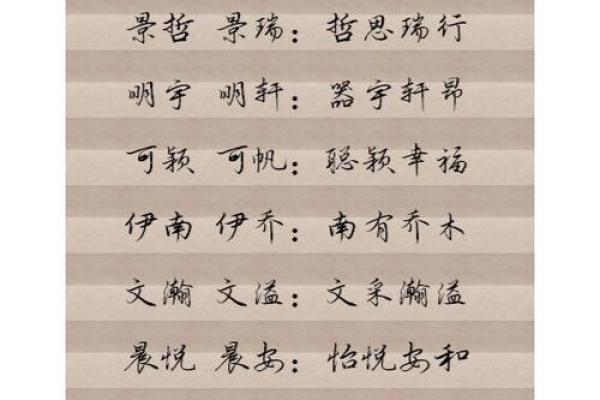 景哲 景瑞：哲思瑞行
明宇 明轩：器宇轩昂
可颖 可帆：聪颖幸福
伊南 伊乔：南有乔木
文瀚 文溢：文采瀚溢
晨悦 晨安：怡悦安和